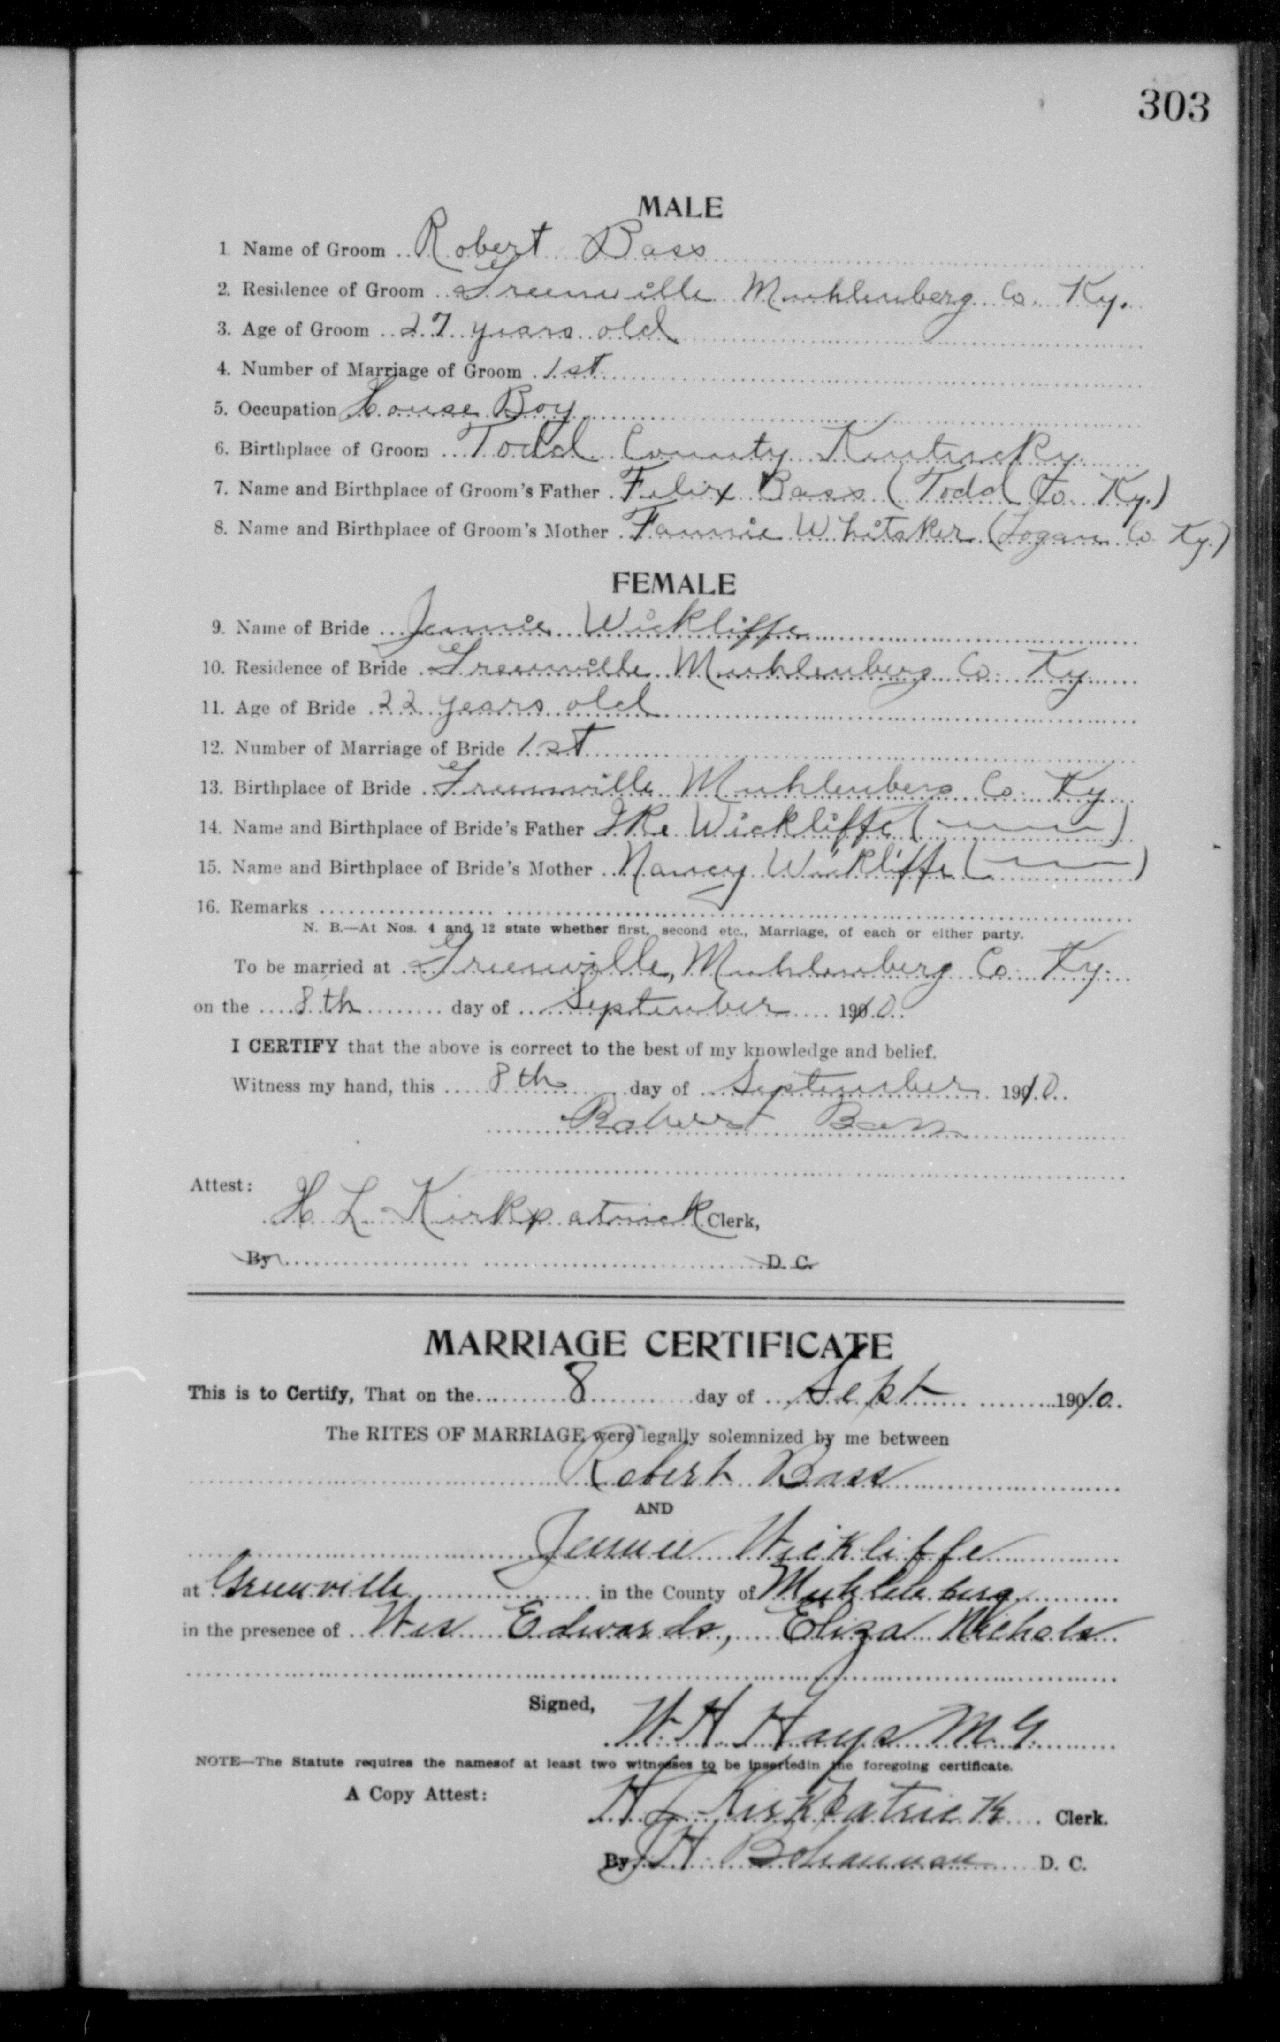 303
MALE
1. Name of Groom Robert Bass
2. Residence of Groom Greenville Muhlenberg Co. Ky.
3. Age of Groom 27 years old
4. Number of Marriage of Groom 1st
5. Occupation House Boy
6. Birthplace of Groom Todd County Kentucky
7. Name and Birthplace of Groom's Father Felix Bass (Todd Co. Ky.)
8. Name and Birthplace of Groom's Mother Fannie Whitaker (Logan Co. Ky.)
FEMALE
9. Name of Bride Jennie Wickliffe
10. Residence of Bride Greenville Muhlenberg Co. Ky
11. Age of Bride 22 years old
12. Number of Marriage of Bride 1st
13. Birthplace of Bride Greenville Muhlenberg Co. Ky
14. Name and Birthplace of Bride's Father Ike Wickliffe ( )
15. Name and Birthplace of Bride's Mother Nancy Wickliffe ( )
16. Remarks
N. B.—At Nos. 4 and 12 state whether first, second etc., Marriage, of each or either party.
To be married at Greenville, Muhlenberg Co. Ky.
on the 8th day of September 1910
I CERTIFY that the above is correct to the best of my knowledge and belief.
Witness my hand, this 8th day of September 1910
Robert Bass
Attest:
H L Kirkpatrick Clerk,
By D. C.
MARRIAGE CERTIFICATE
This is to Certify, That on the 8 day of Sept 1910
The RITES OF MARRIAGE were legally solemnized by me between
Robert Bass
AND
Jennie Wickliffe
at Greenville in the County of Muhlenberg
in the presence of Wes Edwards, Eliza Nichols
Signed,
W. H. Hays M. G.
NOTE—The Statute requires the namesof at least two witnesses to be insertedin the foregoing certificate.
A Copy Attest:
H L Kirkpatrick Clerk.
By H Bohannan D. C.